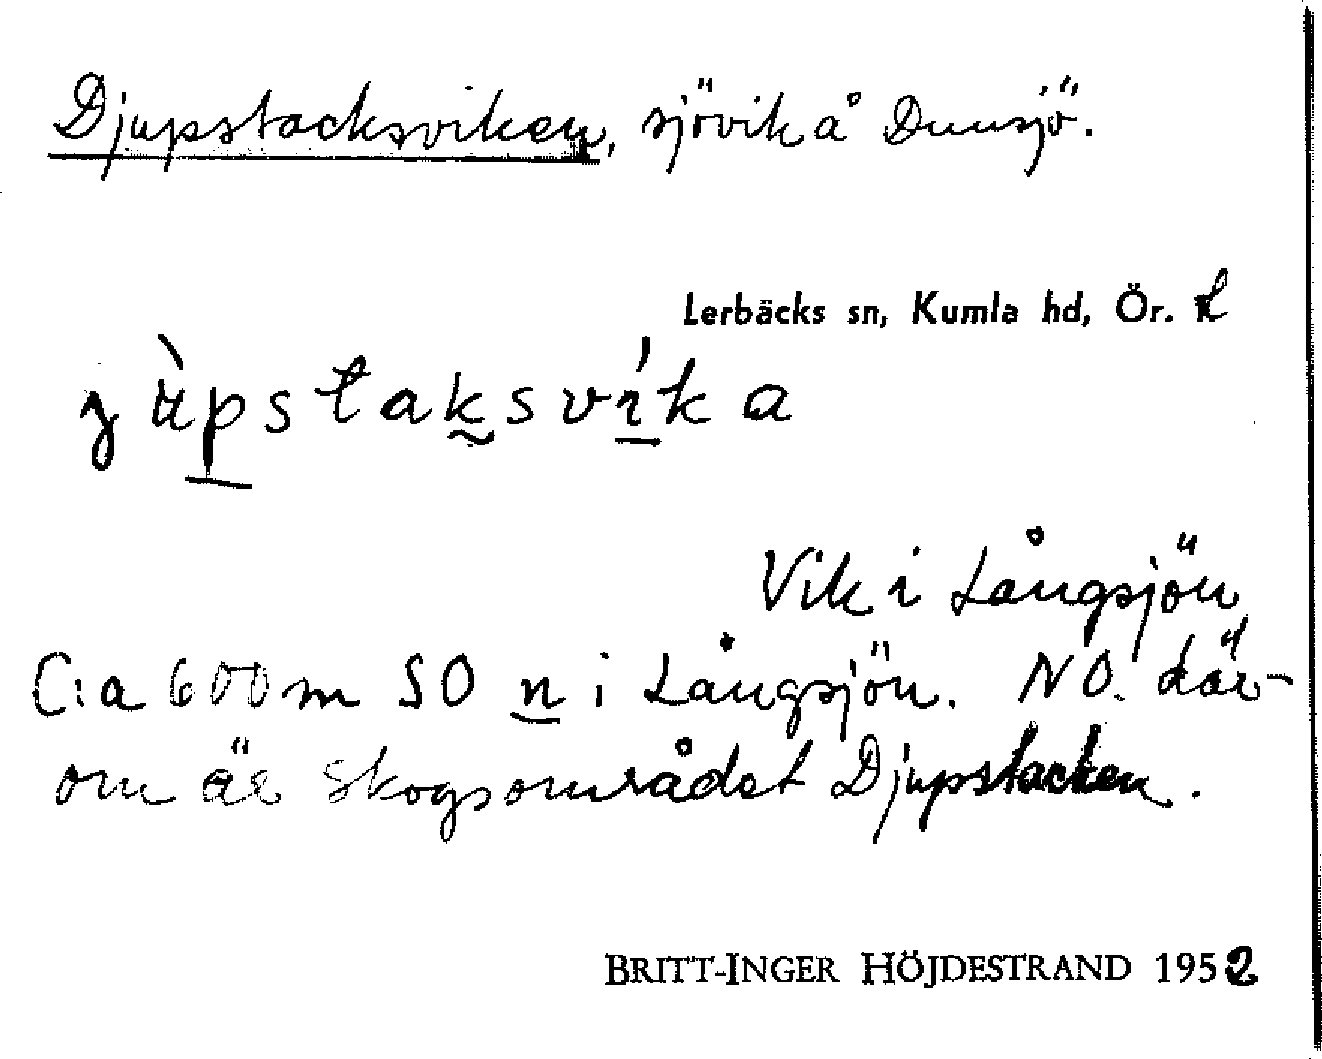 Djupstacksviken, sjövik å Dunsjö.
Lerbäcks sn, Kumla hd, Ör. L
Vik i Långsjön
C:a 600 m SO n i Långsjön. NO. där-
om är skogsområdet Djupstacken.
BRITT-INGER HÖJDESTRAND 1952